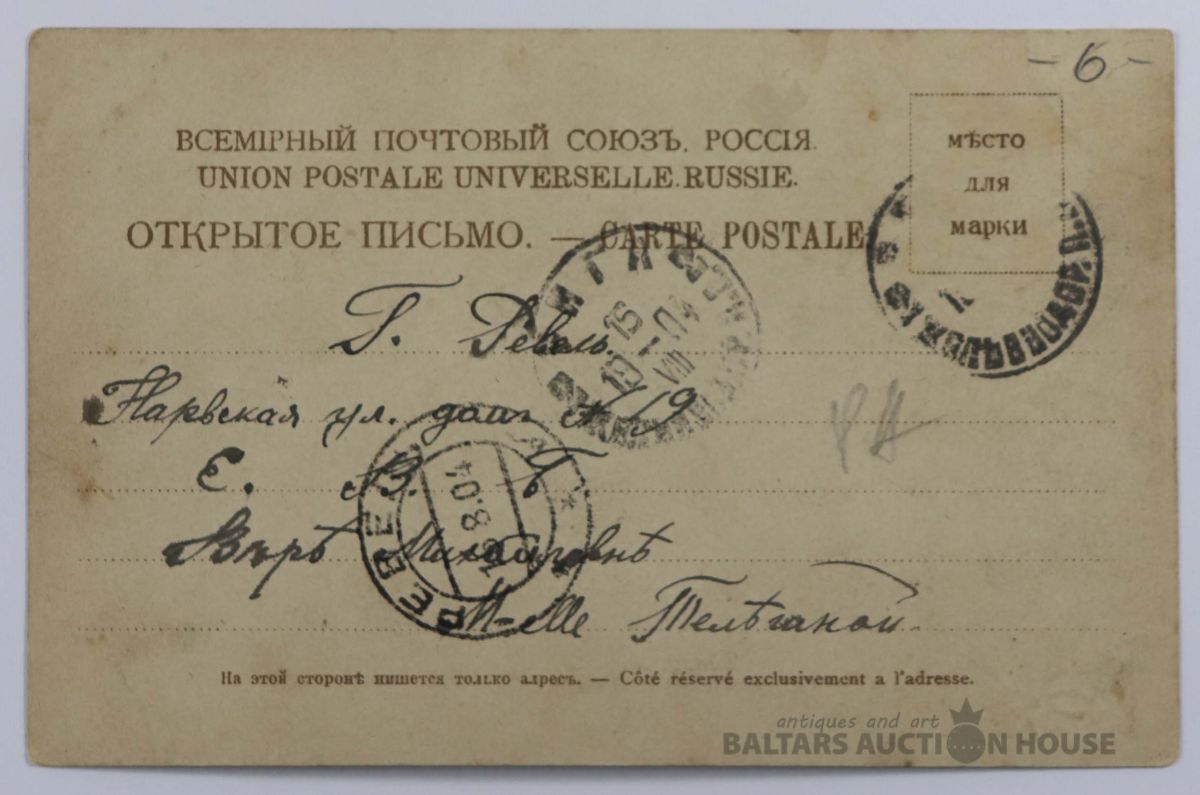 - 6 -
ВСЕМІРНЫЙ ПОЧТОВЫЙ СОЮЗЪ. РОССІЯ.
UNION POSTALE UNIVERSELLE. RUSSIE.
ОТКРЫТОЕ ПИСЬМО. — CARTE POSTALE
МѢСТО
ДЛЯ
МАРКИ
РИГА
15
19 VIII 04
Г. Ревель.
Нарвская ул. домъ № 19
Е. В. Б.
РЕВЕЛЬ
8.04
Вѣрѣ Михайловнѣ
M-elle Телѣгиной
На этой сторонѣ пишется только адресъ. — Côté réservé exclusivement a l'adresse.
antiques and art
BALTARS AUCTION HOUSE